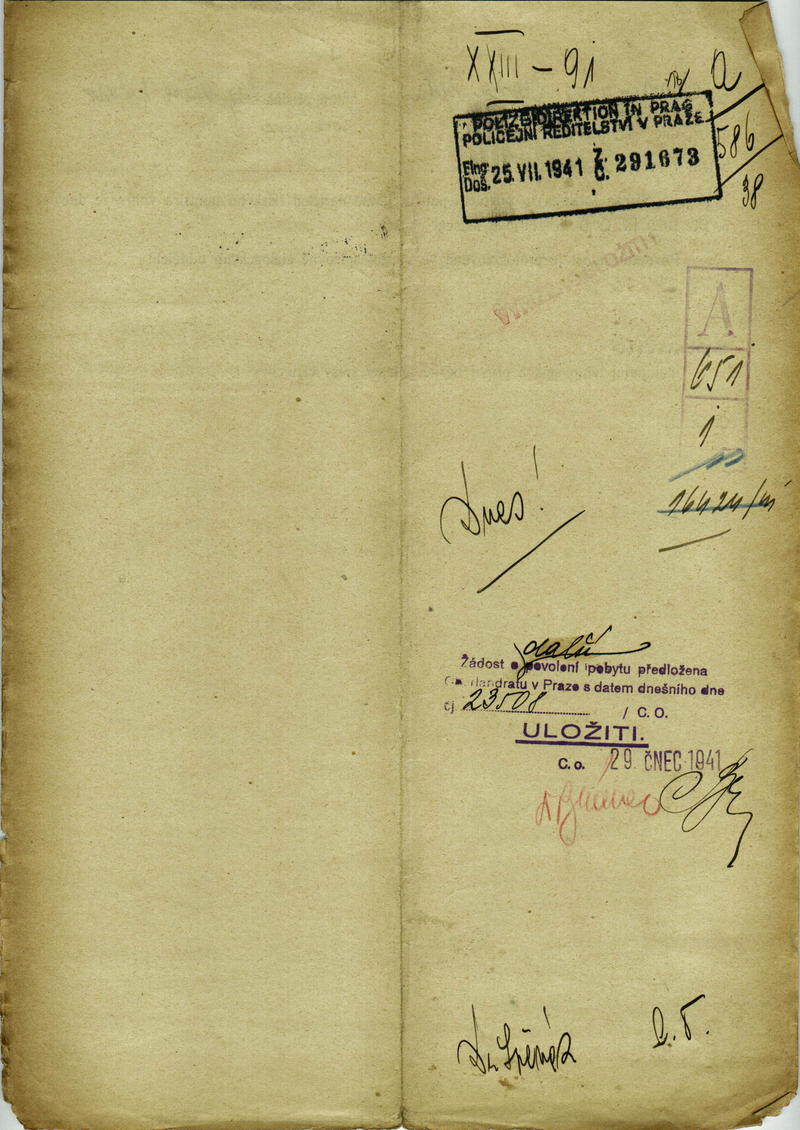 XXIII – 91
A
POLIZEIDIREKTION IN PRAG
POLICEJNÍ ŘEDITELSTVÍ V PRAZE
Eing. Doš. 25. VII. 1941 Z. Č. 291673
586
38
A
651
1
Dnes!
další
Žádost o povolení pobytu předložena
landratu v Praze s datem dnešního dne
čj. 23508 / C. O.
ULOŽITI.
C. o. 29 ČNEC 1941